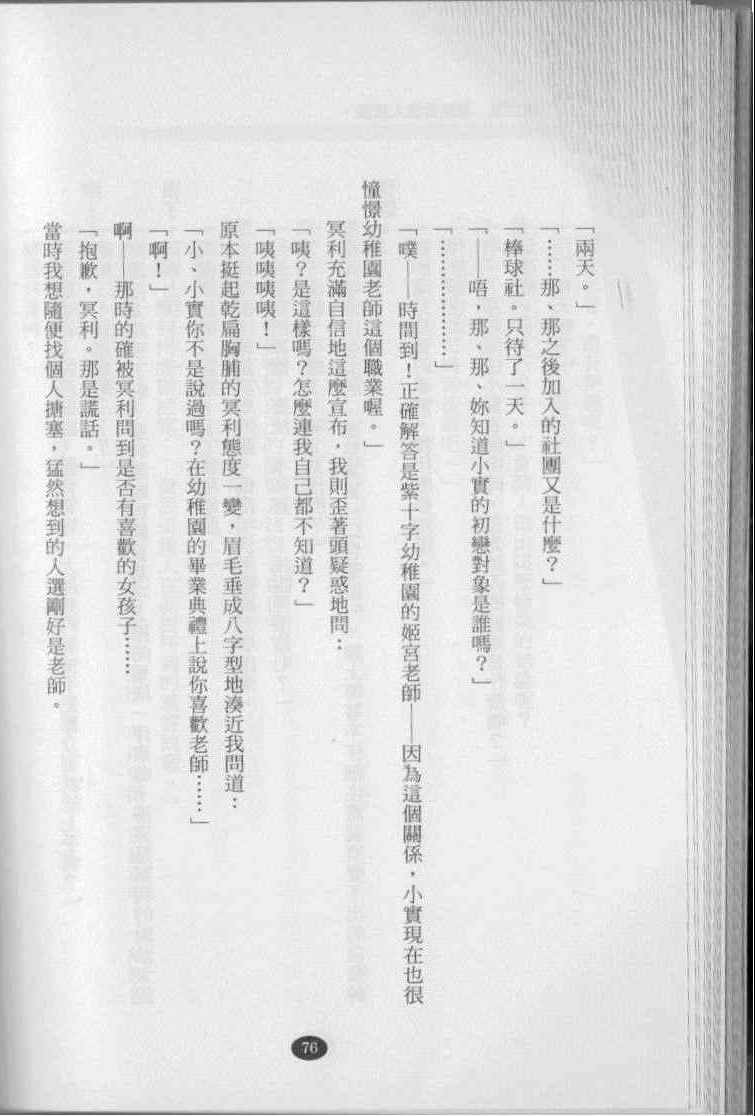 「兩天。」
「……那、那之後加入的社團又是什麼？」
「棒球社。只待了一天。」
「——唔，那、那、妳知道小實的初戀對象是誰嗎？」
「………………」
「噗——時間到！正確解答是紫十字幼稚園的姬宮老師——因為這個關係，小實現在也很
憧憬幼稚園老師這個職業喔。」
冥利充滿自信地這麼宣布，我則歪著頭疑惑地問：
「咦？是這樣嗎？怎麼連我自己都不知道？」
「咦咦咦咦！」
原本挺起乾扁胸脯的冥利態度一變，眉毛垂成八字型地湊近我問道：
「小、小實你不是說過嗎？在幼稚園的畢業典禮上說你喜歡老師……」
「啊！」
啊——那時的確被冥利問到是否有喜歡的女孩子……
「抱歉，冥利。那是謊話。」
當時我想隨便找個人搪塞，猛然想到的人選剛好是老師。
76